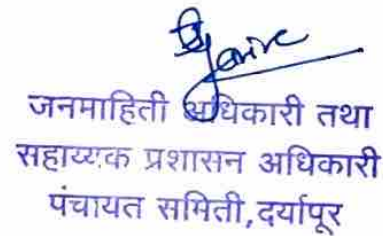 जनमाहिती अधिकारी तथा
सहाय्यक प्रशासन अधिकारी
पंचायत समिती,दर्यापूर